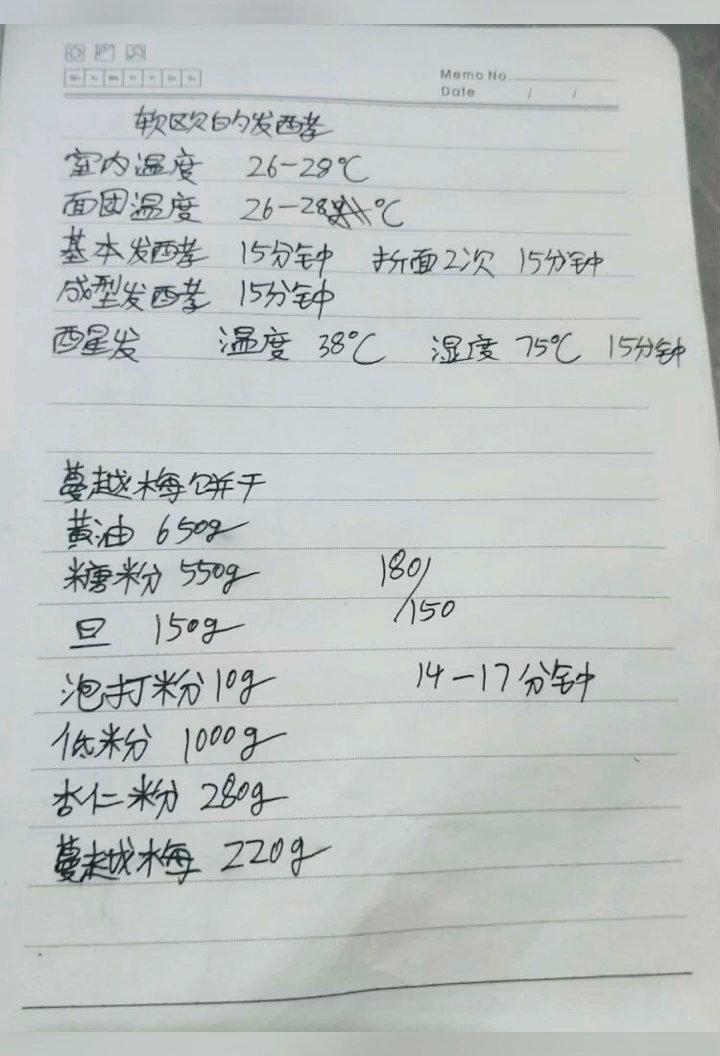 Memo No.
Date / /
软欧的发酵
室内温度 26-28℃
面团温度 26-28℃
基本发酵 15分钟 折面2次 15分钟
成型发酵 15分钟
醒发 温度 38℃ 湿度 75℃ 15分钟
蔓越梅饼干
黄油 650g
糖粉 550g 180/150
旦 150g
泡打粉 10g 14-17分钟
低粉 1000g
杏仁粉 280g
蔓越梅 220g